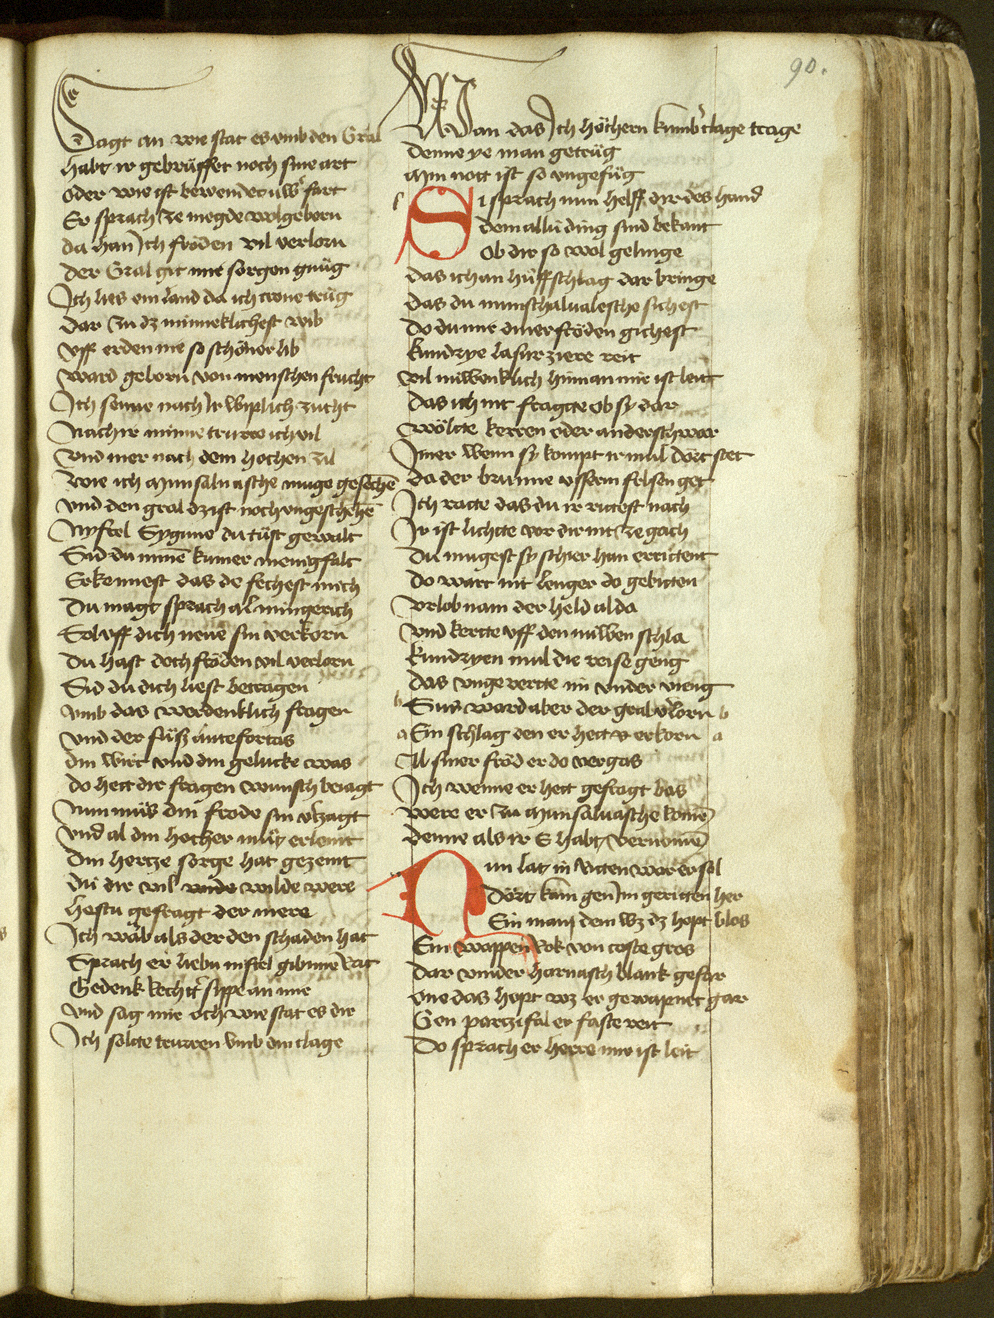 90.
Sagt an wie stat es vmb den Gral
habt ir gebrüffet noch sine art
oder wie ist bewendet üwer fart
Er sprach ze megde wolgeborn
da han Jch fröden vil verlorn
der Gral git mir sorgen gnüg
Jch lies ein land da ich crone trüg
dar zu dz minneklichest wib
vff erden nie so schöner lib
ward geborn von menschen frucht
Jch senne nach Jr wiplich zucht
Nach ir minne trurre ich vil
vnd mer nach dem hochen zil
wie ich Munsaluasche muge gesechē
vnd den gral dz ist noch vngeschehē
Nyftel Sygune du tüst gewalt
Sid du minē kumer menigfalt
Erkennest das de fechest mich
Du magt sprach al min gerich
Sol vff dich neue sin verkorn
Du hast doch fröden vil verlorn
Sid du dich liest betragen
vmb das werdenklich fragen
vnd der süß antefortas
din wirt vnd din gelucke was
do hett dir fragen wunsch beiagt
Nun müs din frode sin vzagt
Vnd al din hocher müt erlemt
Din hertze sorge hat gezemt
dü dir vil wilde were
hestu gefragt der mere
Jch warb als der den schaden hat
Sprach er liebu niftel gib minē rat
Gedenk rechtr sippe an mir
vnd sag mir och wie stat es dir
Jch solte trurren vmb din clage
Wan das Jch höchern kumber clage trage
denne ye man getrüg
Min nott ist so vngefüg
Si sprach nun helff dir des hand
dem allü ding sind bekant
Ob dir so wol gelinge
das ich an hüffschlag dar bringe
das du munschaluasche sichest
Do du mir diner fröden gichest
kundrye lasurziere reit
vil nüwenklich hinnan mir ist leit
das ich nit fragte ob sy dar
wölte kerren oder anderschwar
Jmer wenn sy kompt ir mul dört stet
da der brunne vss dem felsen get
Jch rate das du ir ritest nach
Jr ist lichte vor dir nit ze gach
Du mugest sy schier han erritten
Do wart nit lenger do gebitten
vrlob nam der held alda
vnd kerte vff den nüwen schla
kundryen mul die reise geng
das vngeverte im vnder vieng
b Sus ward aber der gral vlorn b
a Ein schlag den er hett verkorn a
Al siner fröd er do vergas
Jch wenne er hett gefragt bas
were er zu Munsaluasche komē
denne als ir E habt vernomē
Nun lat in riten war er sol
Dört kam gen Jm geritten her
Ein man dem wz dz hopt blos
Sin wappen rok von coste gros
dar vnnder harnasch blank gefar
one das hopt wz er gewapnet gar
Gen partzifal er faste reit
Do sprach er herre mir ist leit